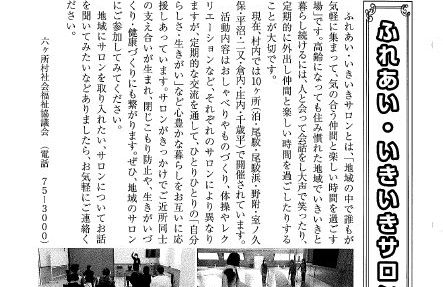 ふれあい・いきいきサロン
ふれあい・いきいきサロンとは、「地域の中で誰もが
気軽に集まって、気の合う仲間と楽しい時間を過ごす
場」です。高齢になっても住み慣れた地域でいきいきと
暮らし続けるには、人と会って会話をし大声で笑ったり、
定期的に外出し仲間と楽しい時間を過ごしたりする
ことが大切です。
現在、村内では10ヶ所(泊・尾駮・尾駮浜・野附・室ノ久
保・平沼・二又・倉内・庄内・千歳平)で開催されています。
活動内容はおしゃべりやものづくり、体操やレク
リエーションなど、それぞれのサロンにより異なり
ますが、定期的な交流を通して、ひとりひとりの「自分
らしさ・生きがい」など心豊かな暮らしをお互いに応
援しあっています。サロンがきっかけでご近所同士
の支え合いが生まれ、閉じこもり防止や、生きがいづ
くり・健康づくりにも繋がります。ぜひ、地域のサロン
にご参加してみてください。
地域にサロンを取り入れたい、サロンについてお話
を聞いてみたいなどありましたら、お気軽にご連絡く
ださい。
六ヶ所村社会福祉協議会 (電話 75-3000)